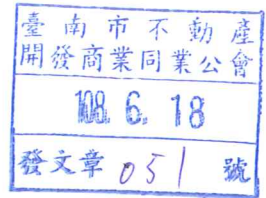 臺南市不動產
開發商業同業公會
108. 6. 18
發文章051號